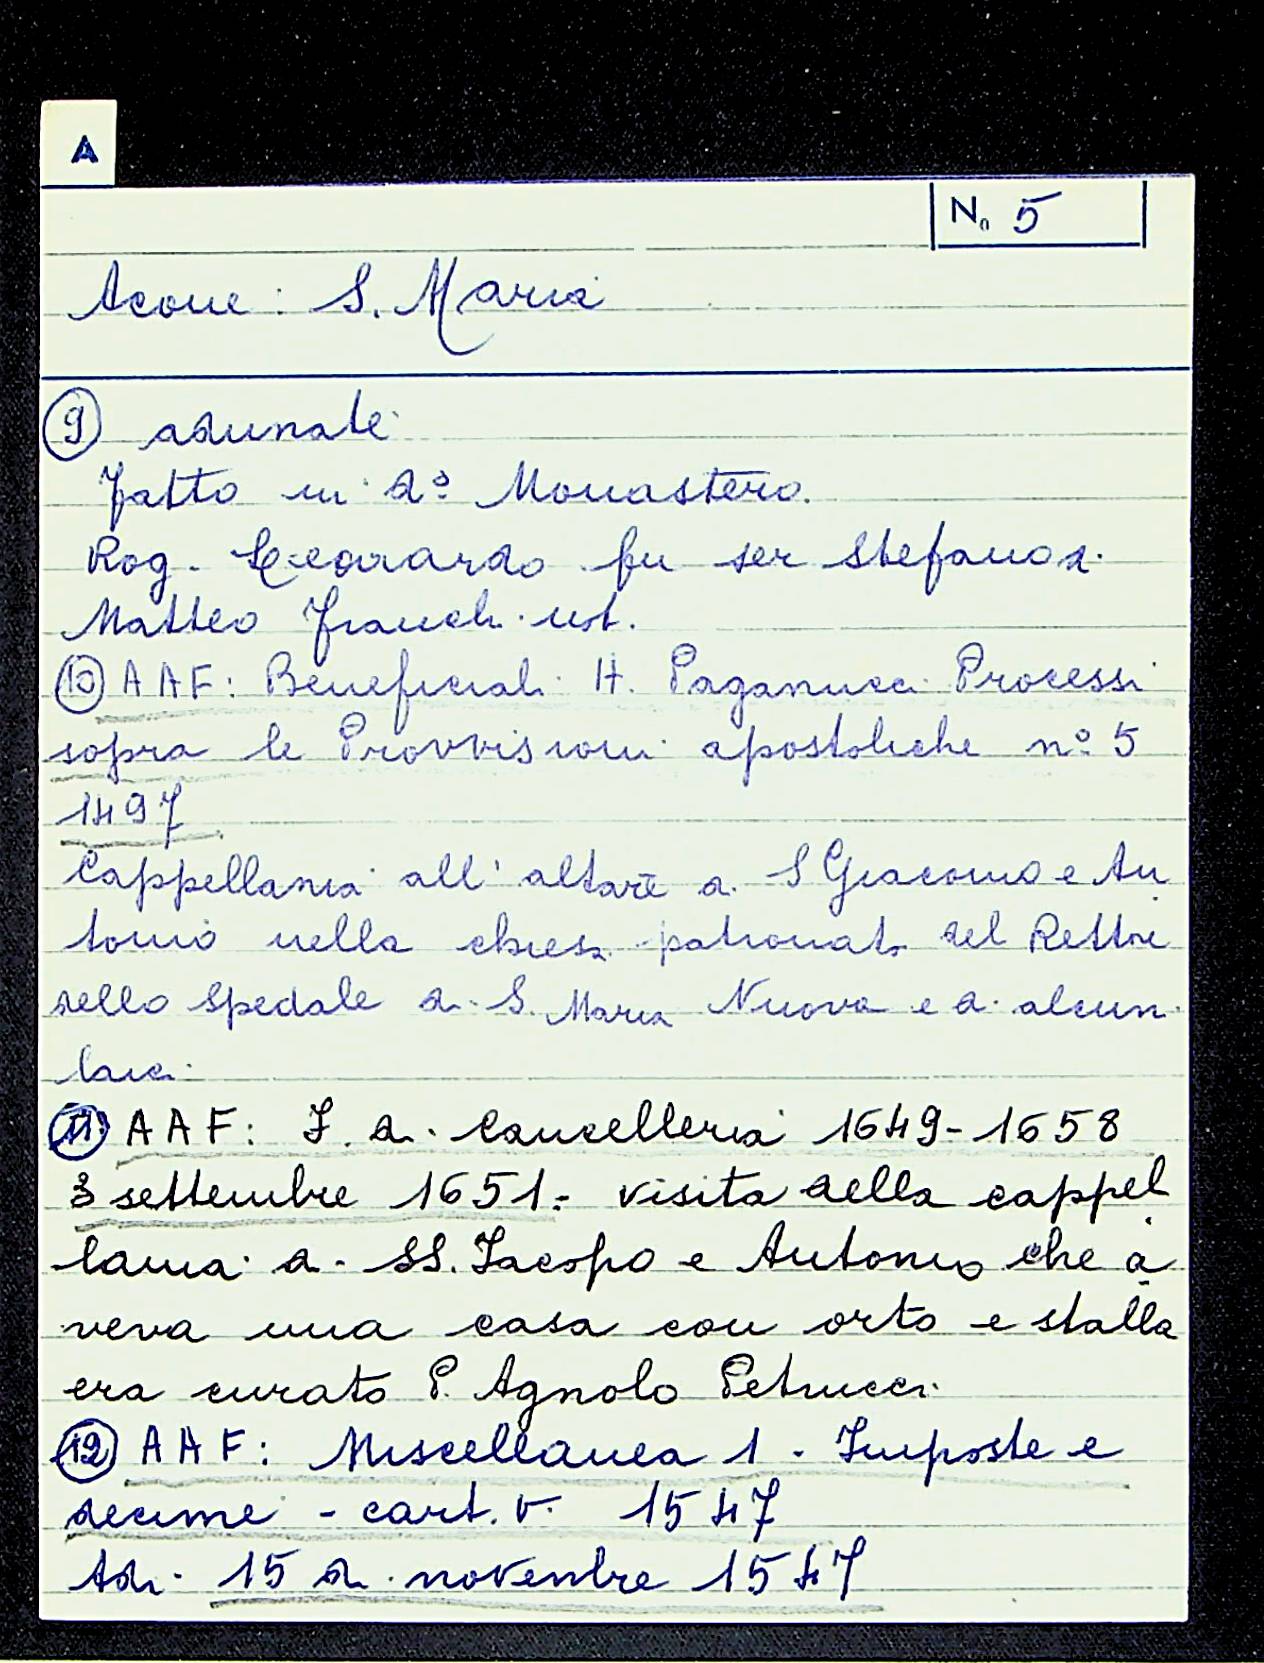 A
N. 5
Acone: S. Maria
9 adunate
Fatto in d° Monastero.
Rog. Leonardo fu ser Stefano di
Matteo Franchi not.
10 AAF: Beneficiali H. Paganucci Processi
sopra le Provvisioni apostoliche n° 5
1497
Cappellania all'altare di S Giacomo e An
tonio nella chiesa patronato del Rettore
dello Spedale di S. Maria Nuova e di alcuni
laici
11 AAF: F. di Cancelleria 1649-1658
3 settembre 1651.- visita della cappel
lania di SS. Jacopo e Antonio che a
veva una casa con orto e stalla
era curato P. Agnolo Petrucci
12 AAF: Miscellanea 1 - Imposte e
decime - cart. V. 1547
Adi 15 di novembre 1547